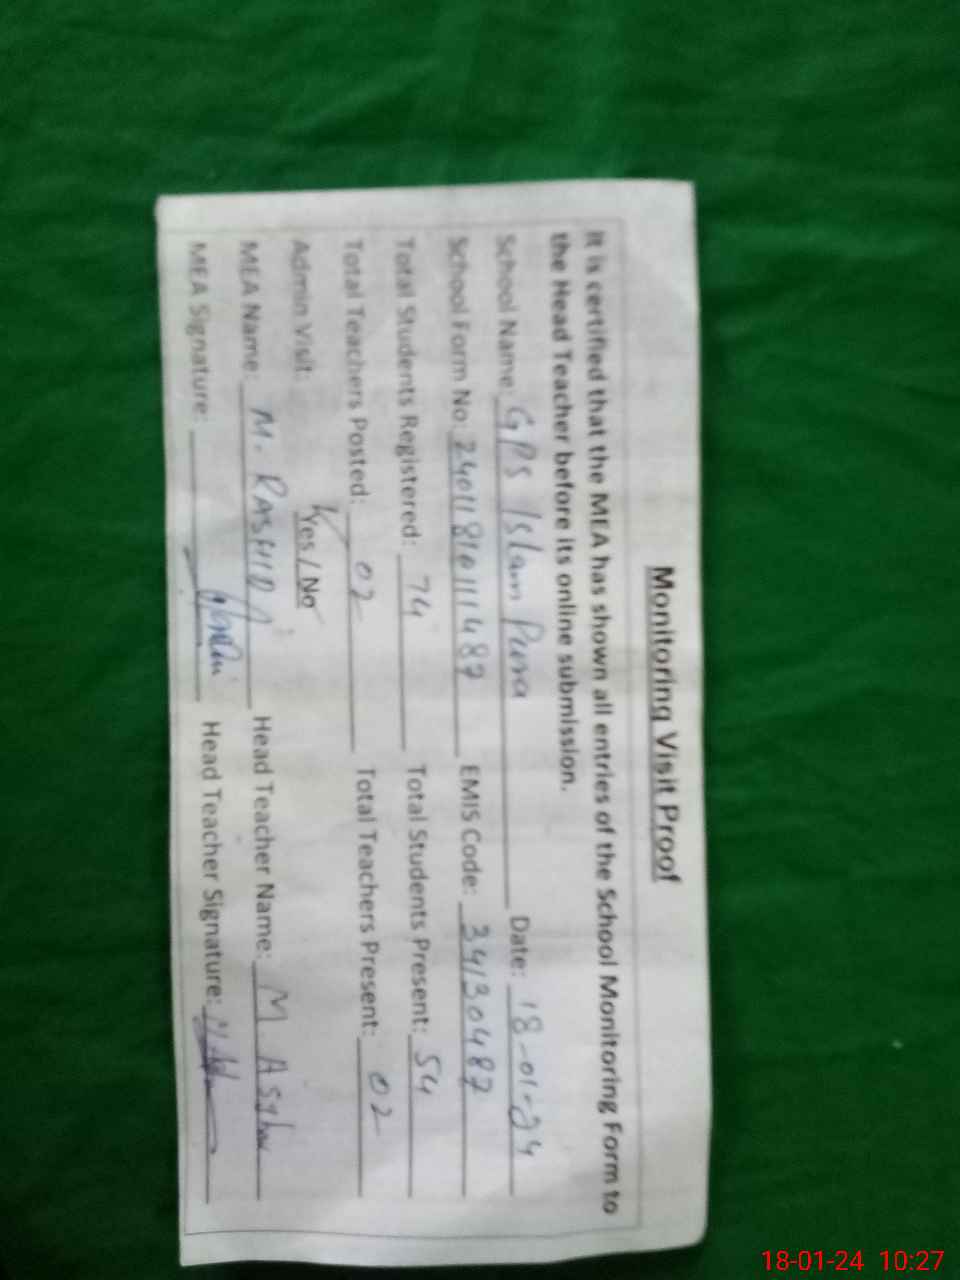 Monitoring Visit Proof
It is certified that the MEA has shown all entries of the School Monitoring Form to
the Head Teacher before its online submission.
School Name: GPS Islam Pura Date: 18-01-24
School Form No: 24011810111487 EMIS Code: 34130487
Total Students Registered: 74 Total Students Present: 54
Total Teachers Posted: 02 Total Teachers Present: 02
Admin Visit: Yes / No
MEA Name: M. RASHID Head Teacher Name: M
MEA Signature: Head Teacher Signature:
18-01-24 10:27